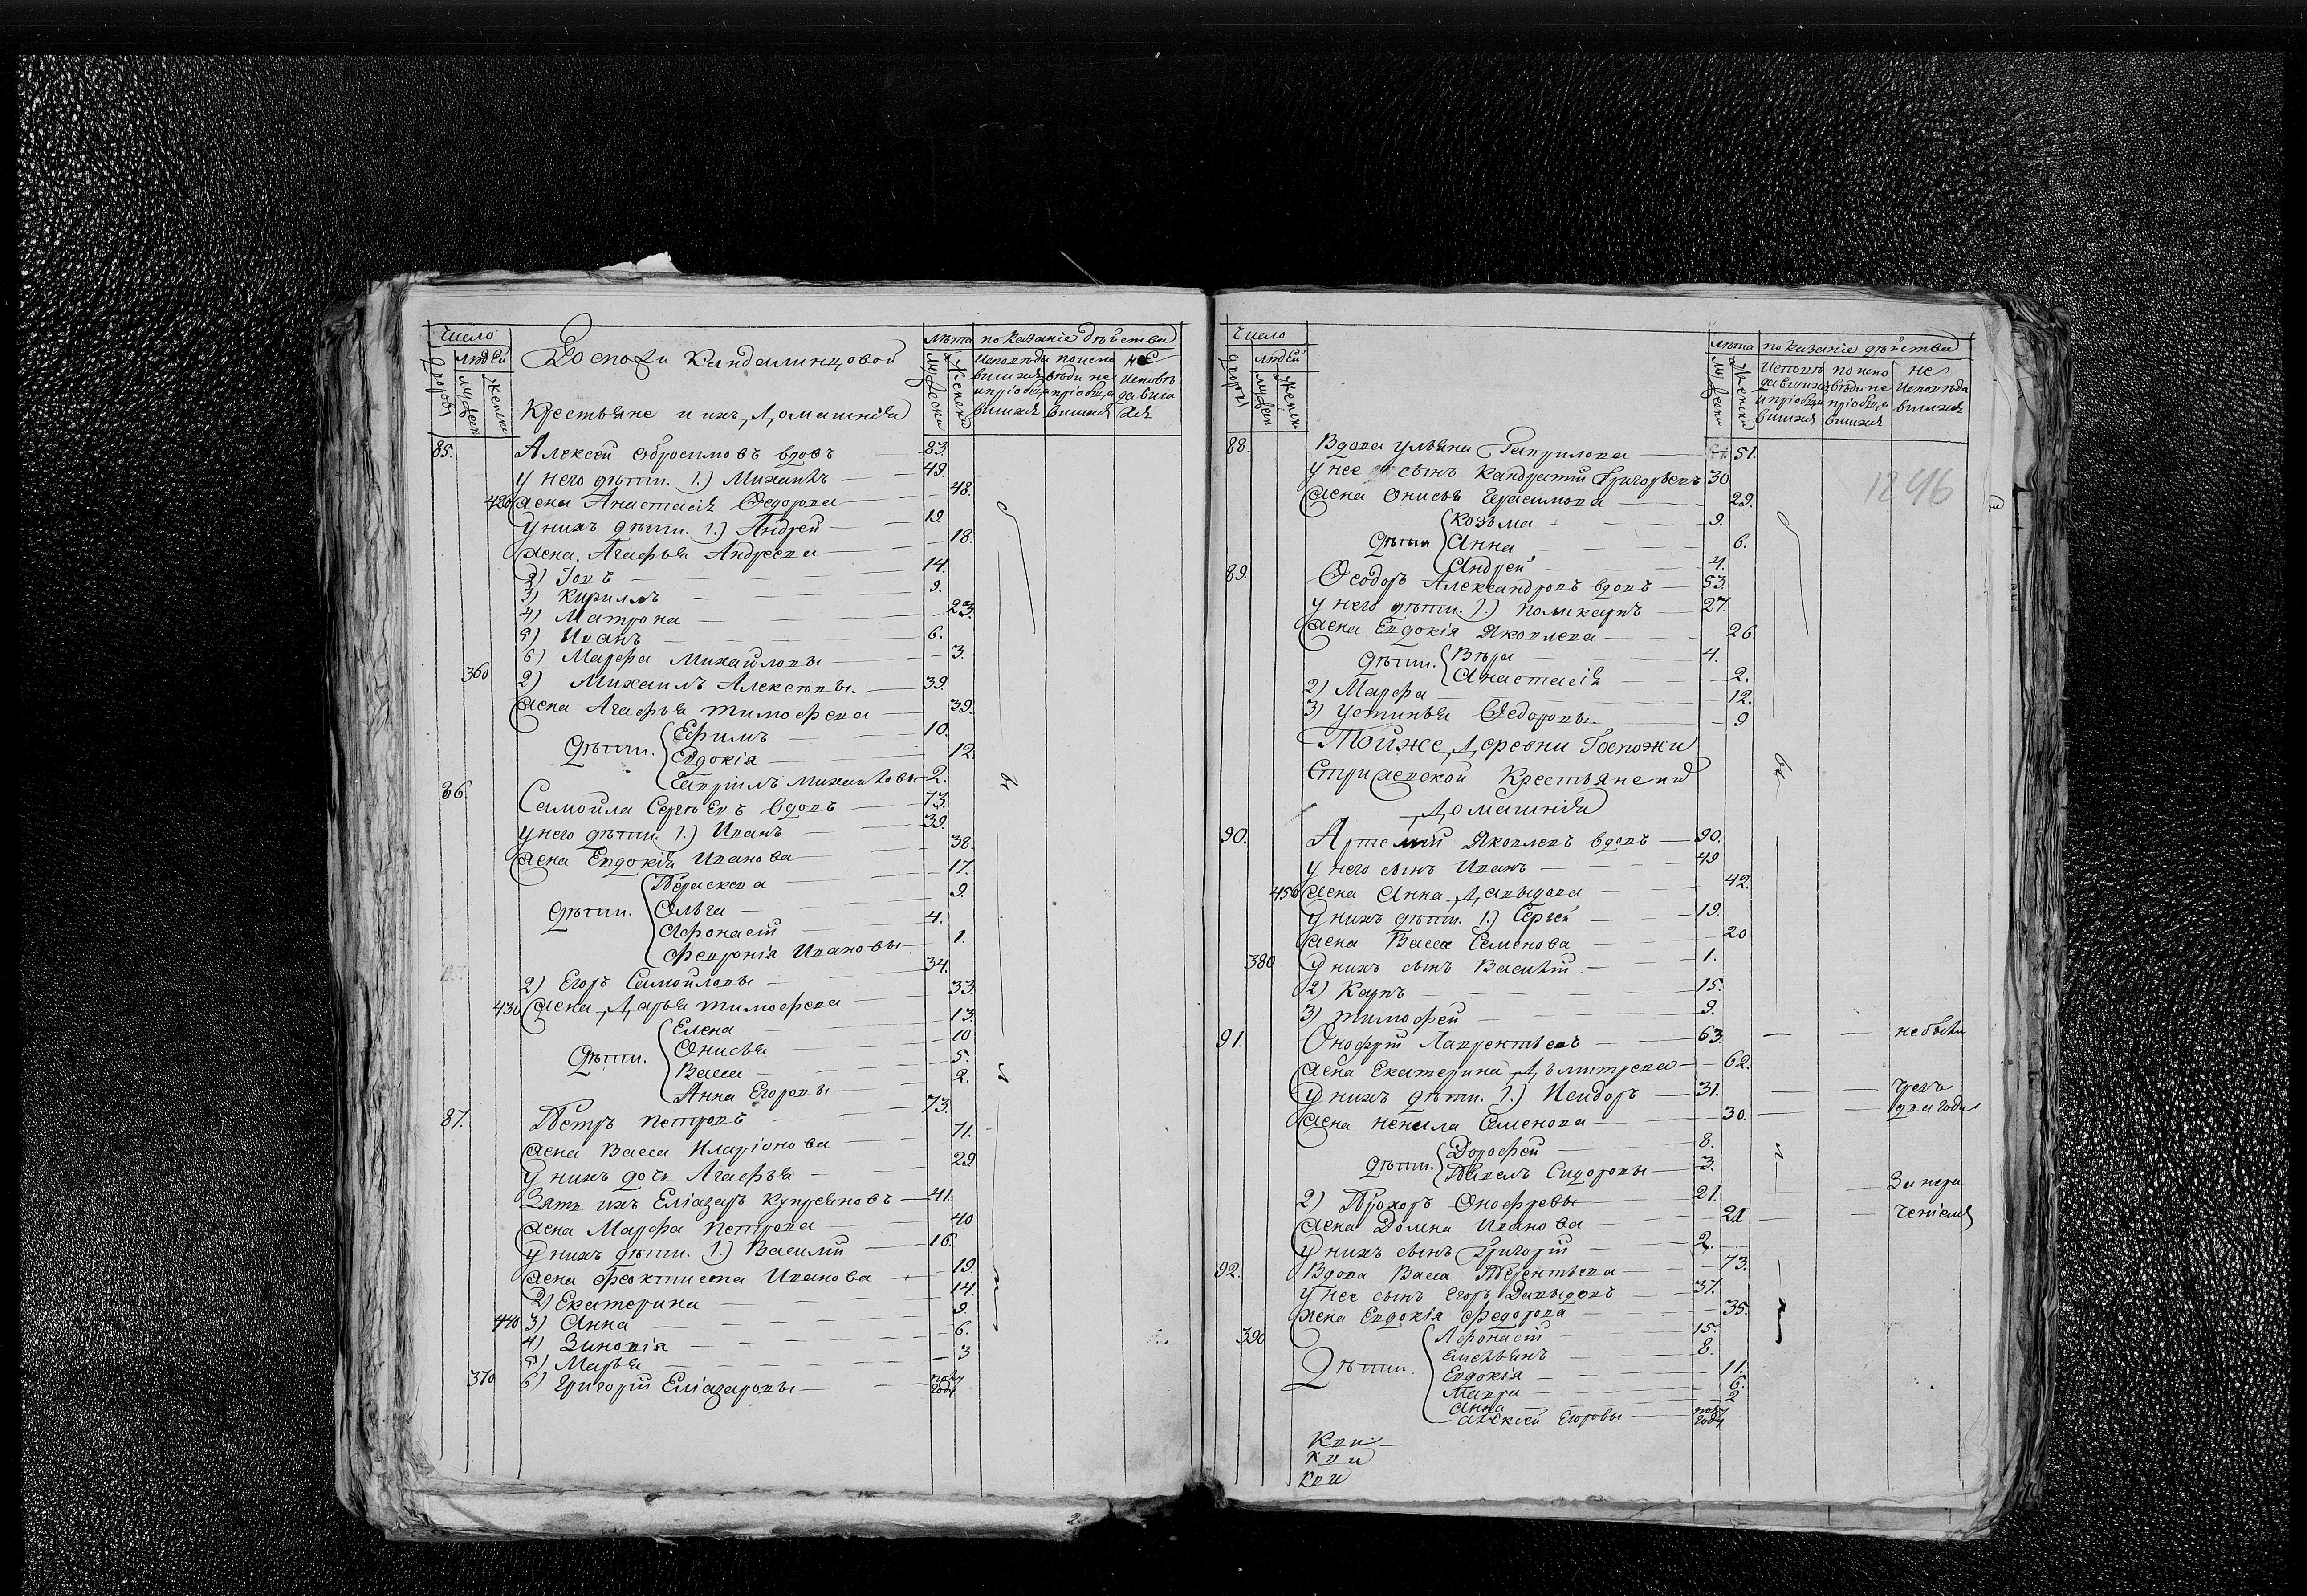 Число
людей
лѣта
показанiе дѣйства
Дворовъ
муж.
женск.
мужеск.
женск.
Госпожи Кандалинцовой
Крестьяне и ихъ Домашнiя
85. Алексей Обросимовъ вдовъ — 83.
у него дѣти. 1.) Михаилъ — 49.
420 жена Анастасiя Ѳедорова — 48.
у нихъ дѣти. 1.) Андрей — 19.
жена. Агафья Андреева — 18.
2) Iовъ — 14.
3) Кирилъ — 9.
4) Матрона — 23.
5) Иванъ — 6.
6) Марфа Михайловы — 3.
360 2) Михаилъ Алексѣевы. — 39.
жена Агафья Тимофеева — 39.
дѣти. Ефимъ — 10.
Евдокiя — 12.
Гаврiилъ Михайловы — 2.
86. Самойла Сергѣевъ вдовъ — 73.
у него дѣти 1.) Иванъ — 39.
жена Евдокiя Иванова — 38.
Параскева — 17.
дѣти. Ольга — 9.
Афонасiй — 4.
Февронiя Ивановы — 1.
2) Егоръ Самойловы — 34.
430 жена Дарья Тимофеева — 33.
Елена — 13.
дѣти. Онисья — 10
Васса — 5.
Анна Егоровы — 2.
87. Петръ Петровъ — 73.
жена Васса Иларiонова — 71.
у нихъ дочь Агафья — 29
Зять ихъ Елiазаръ Купреяновъ — 41.
жена Марфа Петрова — 40
у нихъ дѣти. 1.) Василiй — 16.
жена Феоктиста Иванова — 19.
2) Екатерина — 14.
440 3) Анна — 9.
4) Зиновiя — 6.
5) Марья — 3
370 6) Григорiй Елiазаровы — полу году
Число
людей
лѣта
показанiе дѣйства
88. Вдова Ульяна Гаврилова — 51.
у нее сынъ Кандратiй Григорьевъ 30
жена Онисья Герасимова — 29.
Козьма — 9.
дѣти Анна — 6.
Андрей — 4.
1246
89. Ѳеодоръ Александровъ вдовъ — 53.
у него дѣти. 1.) Поликарпъ — 27.
жена Евдокiя Яковлева — 26.
дѣти. Вѣра — 4.
Анастасiя — 2.
2) Марфа — 12.
3) Устинья Ѳедоровы — 9
Тойже Деревни Госпожи
Стрижевской Крестьяне и
Домашнiя
90. Артемiй Яковлевъ вдовъ — 90.
у него сынъ Иванъ — 49
450 жена Анна Давыдова — 42.
у нихъ дѣти. 1.) Сергей — 19.
жена Васса Семенова — 20
380 у нихъ сынъ Василiй — 1.
2) Карпъ — 15.
3) Тимофей — 9.
91. Онофрiй Лаврентьевъ — 63. — — небытi
жена Екатерина Дьмитрева — 62.
у нихъ дѣти. 1.) Исидоръ — 31. — — чрезъ
жена Ненила Семенова — 30. — — два года
дѣти. Дорофей — 8.
Павелъ Сидоровы — 3.
2) Прохоръ Онофревы — 21. — — За нера
жена Домна Иванова — 21 — — ченiемъ
у нихъ сынъ Григорiй — 2.
92. Вдова Васса Терентьева — 73.
у нее сынъ Егоръ Давыдовъ — 37.
жена Евдокiя Федорова — 35.
390 Афонасiй — 15.
Емельянъ — 8.
Дѣти. Евдокiя — 11.
Мавра — 6.
Анна — 2
Алексей Егоровы — полу году